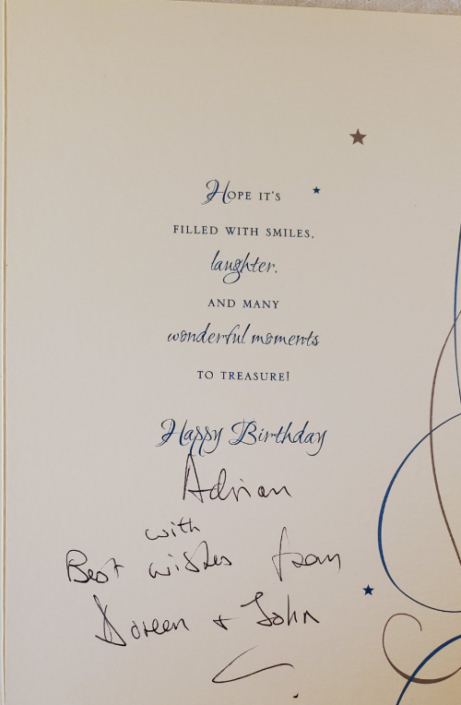 Hope it's
filled with smiles,
laughter,
and many
wonderful moments
to treasure!
Happy Birthday
Adrian
with
Best wishes from
Doreen + John